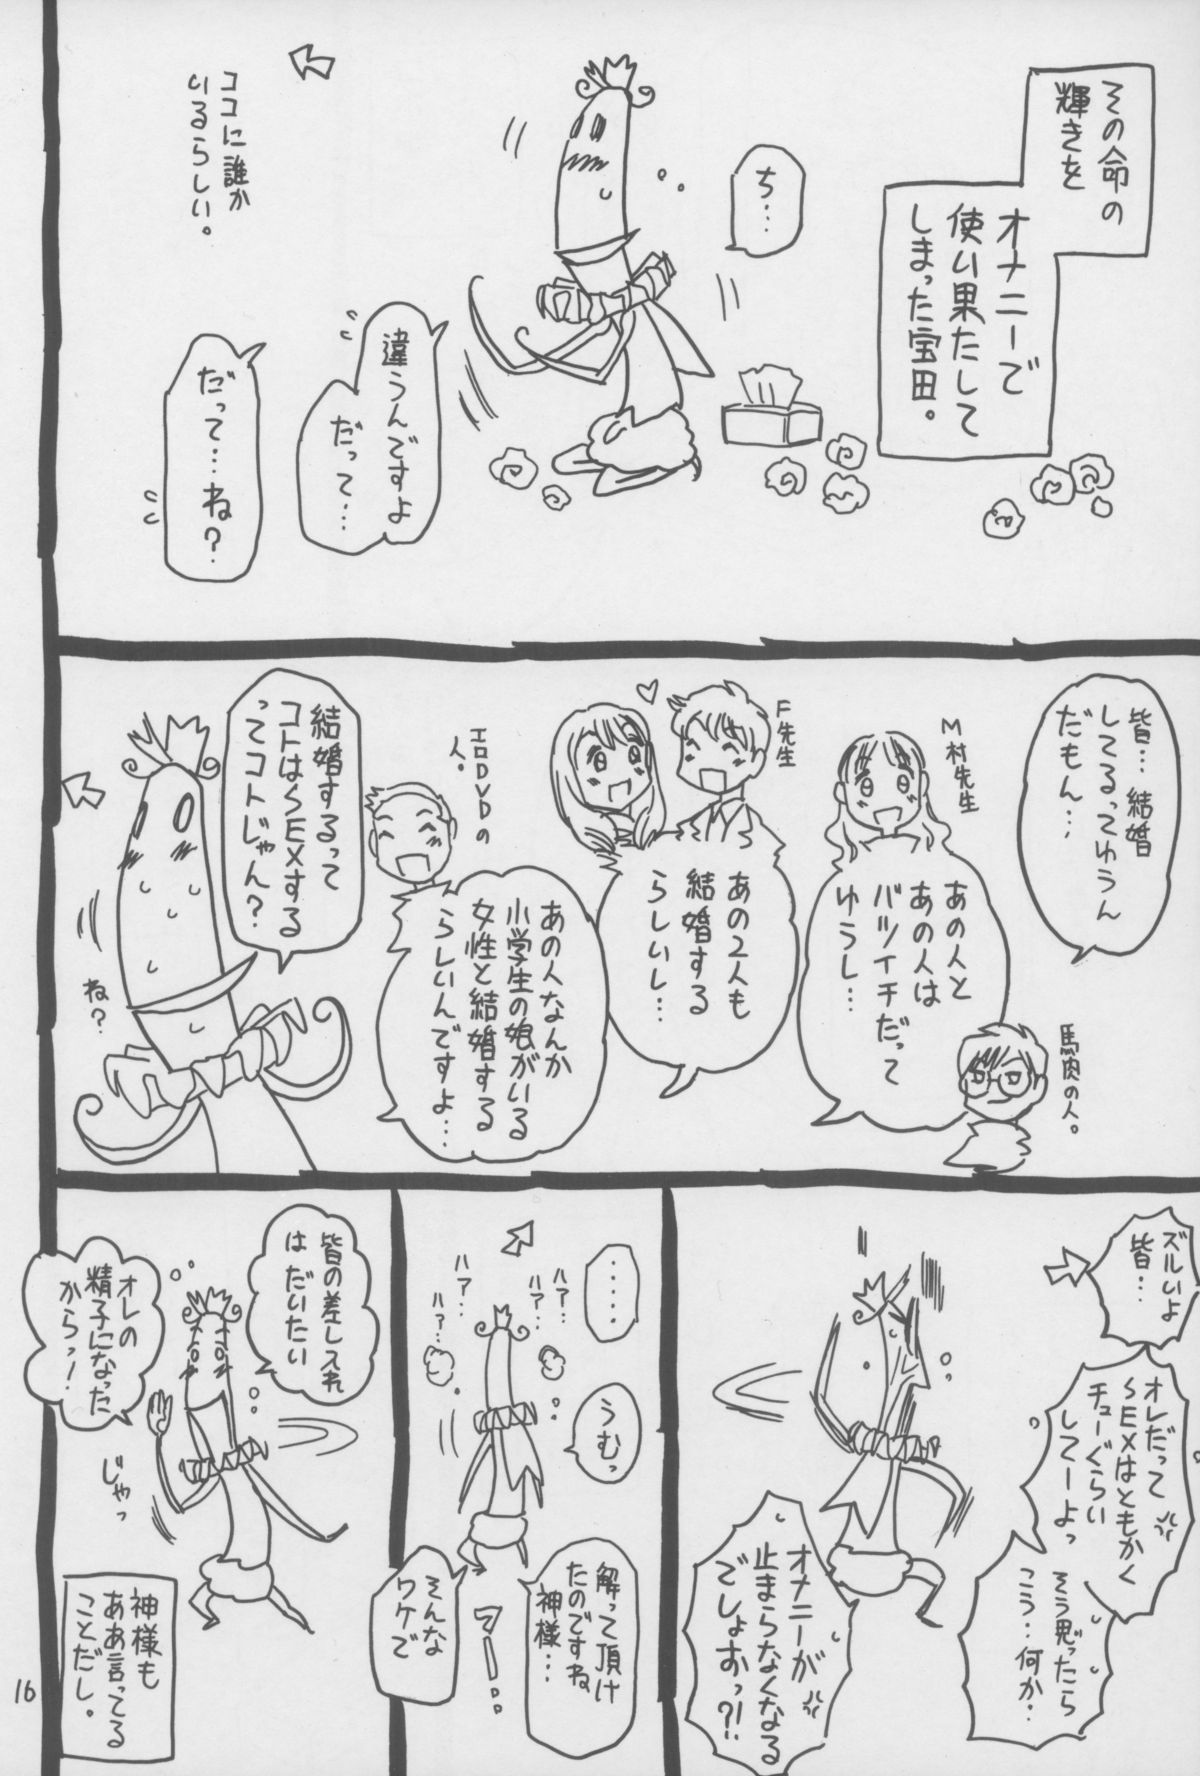 その命の
輝きを
オナニーで
使い果たして
しまった宝田。
ち…
違うんですよ
だって…
だって…ね?
ココに誰か
いるらしい。
皆…結婚
してるってゆうん
だもん…
馬肉の人。
M村先生
あの人と
あの人は
バツイチだって
ゆうし…
F先生
あの2人も
結婚する
らしいし…
エロDVDの
人。
あの人なんか
小学生の娘がいる
女性と結婚する
らしいんですよ…
結婚するって
コトはSEXする
ってコトじゃん?
ね?
ズルいよ
皆…
オレだって
SEXはともかく
チューぐらい
してーよっ
そう思ったら
こう…何か…
オナニーが
止まらなくなる
でしょおっ?!
……
うむっ
ハァ…
ハァ…
ハァ…
ハァ…
解って頂け
たのですね
神様…
そんな
ワケで
皆の差し入れ
はだいたい
オレの
精子になった
からっ!
じゃっ
神様も
ああ言ってる
ことだし。
16